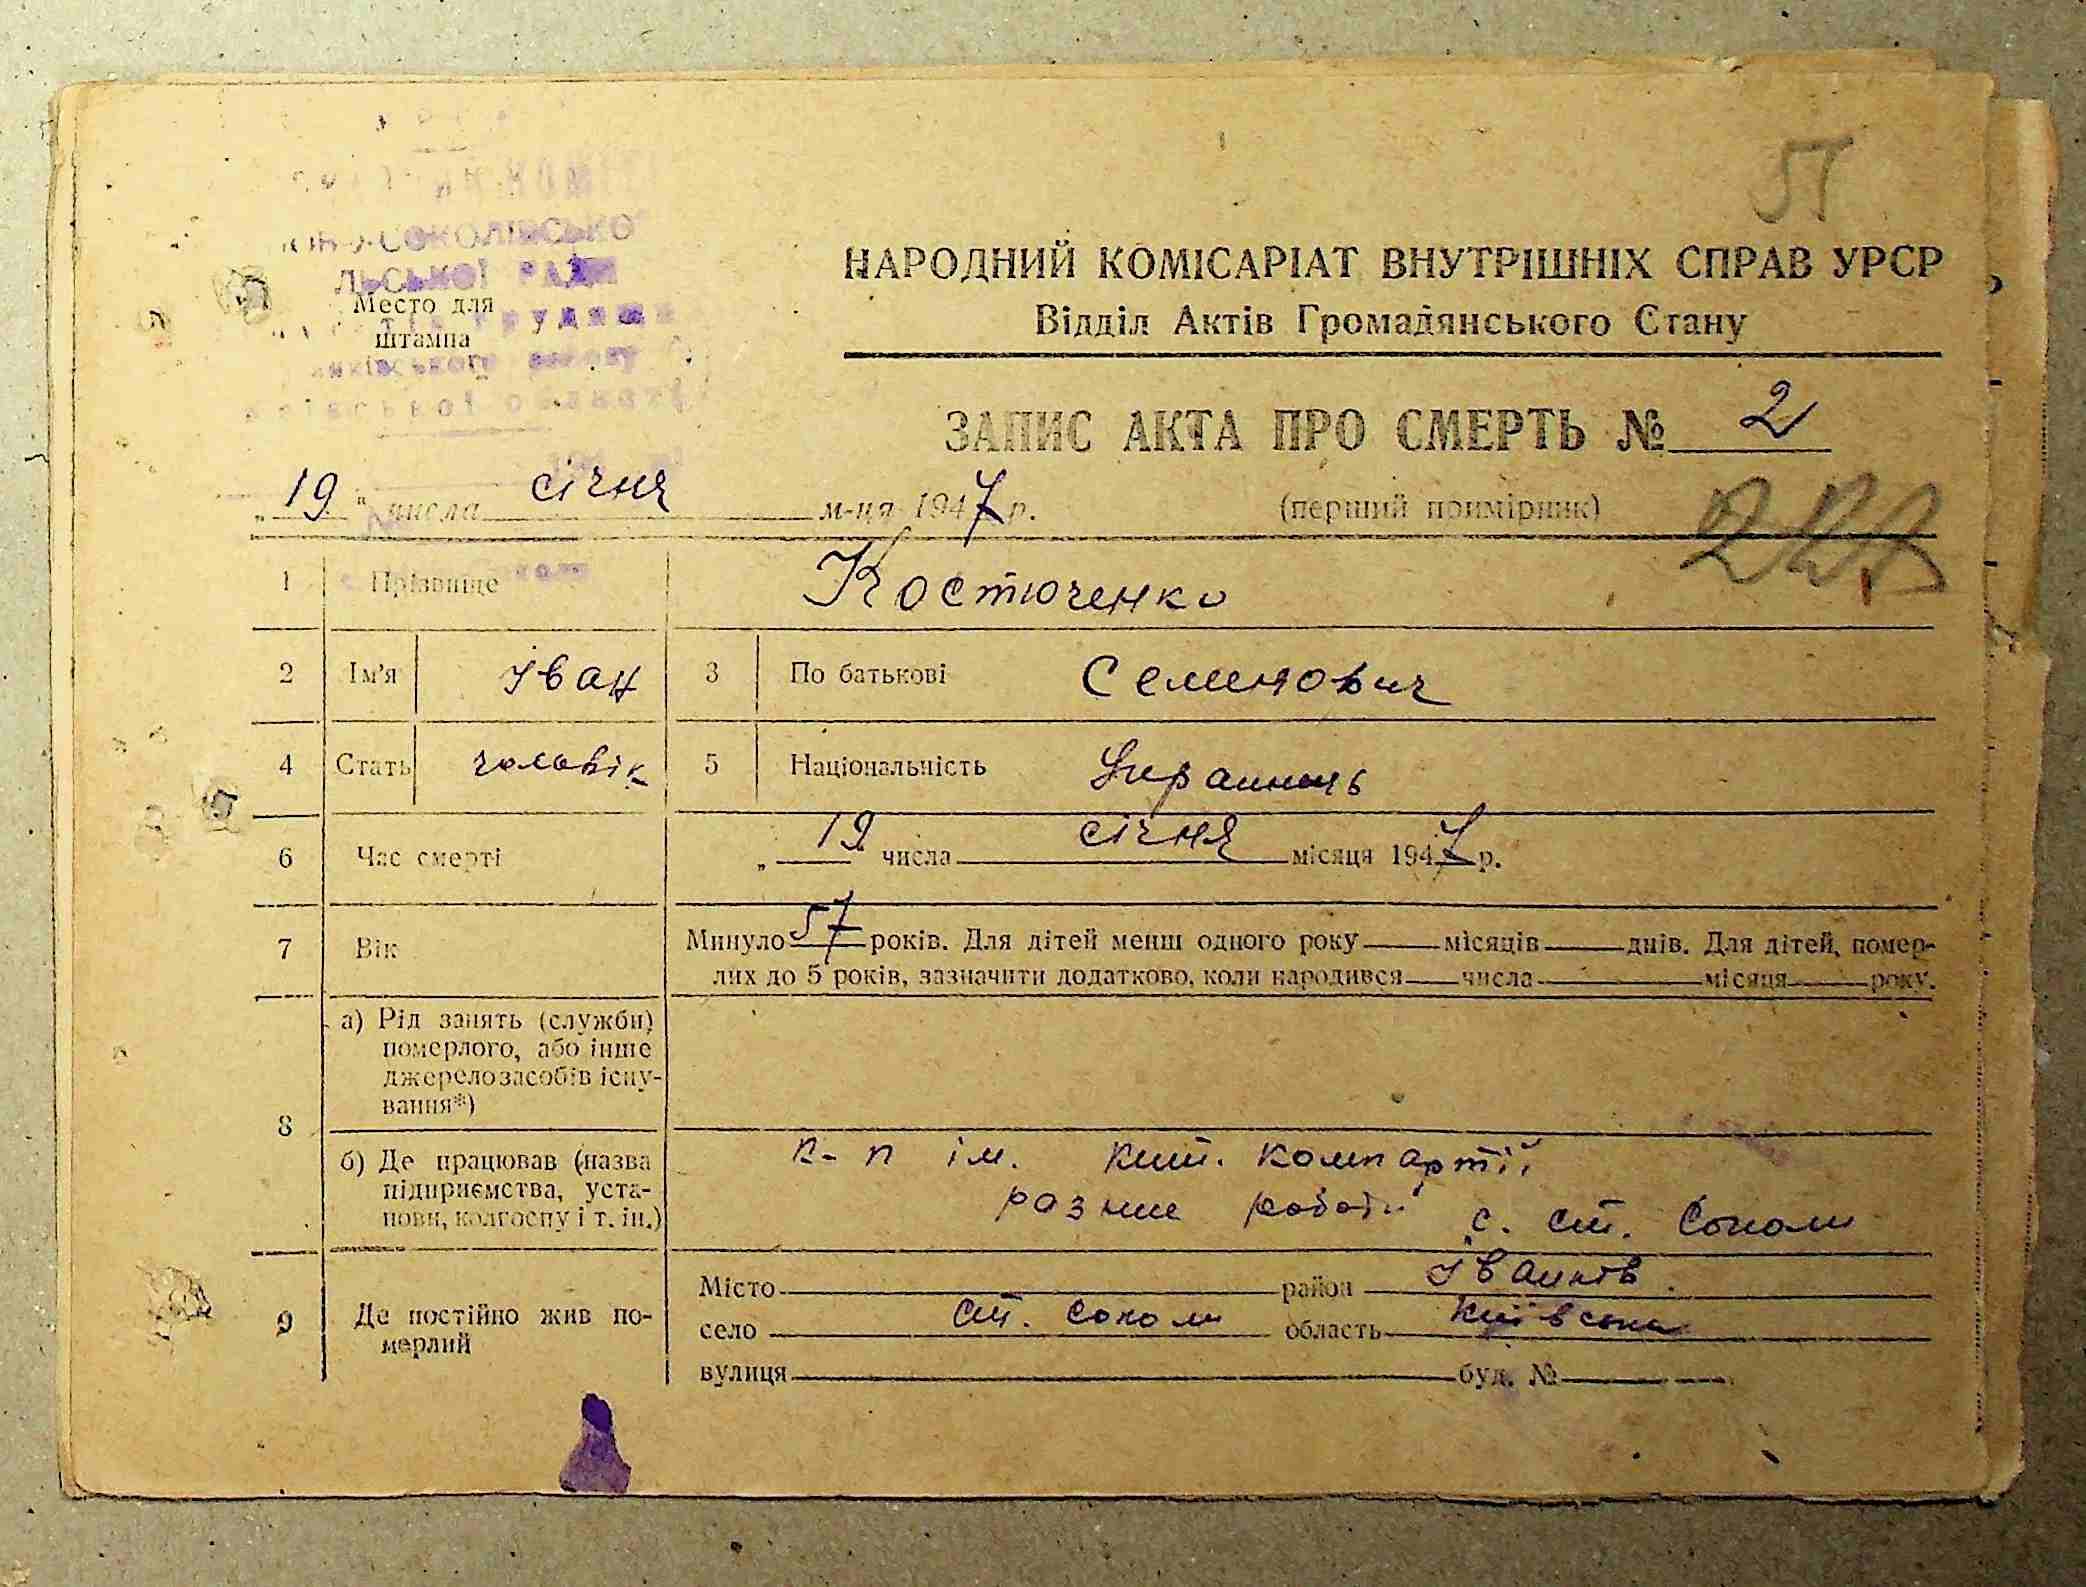 СОКОЛІВСЬКО
ЛЬСЬКОЇ РАДИ
Место для
штампа
НАРОДНИЙ КОМІСАРІАТ ВНУТРІШНІХ СПРАВ УРСР
Відділ Актів Громадянського Стану
ЗАПИС АКТА ПРО СМЕРТЬ № 2
„19“ числа січня м-ця 1947 р. (перший примірник)
1 Прізвище Костюченко
2 Ім'я Іван 3 По батькові Семенович
4 Стать чоловік 5 Національність Украинець
6 Час смерті „19 числа січня місяця 1947 р.
7 Вік Минуло 57 років. Для дітей менш одного року місяців днів. Для дітей, помер-
лих до 5 років, зазначити додатково, коли народився числа місяця року.
8 а) Рід занять (служби)
померлого, або інше
джерело засобів існу-
вання*)
б) Де працював (назва
підприємства, уста-
нови, колгоспу і т. ін.)
к-п ім. кит. компартії
разние роботи с. ст. Соколи
9 Де постійно жив по-
мерлий
Місто район Іванків
село ст. Соколи область Київська
вулиця буд. №